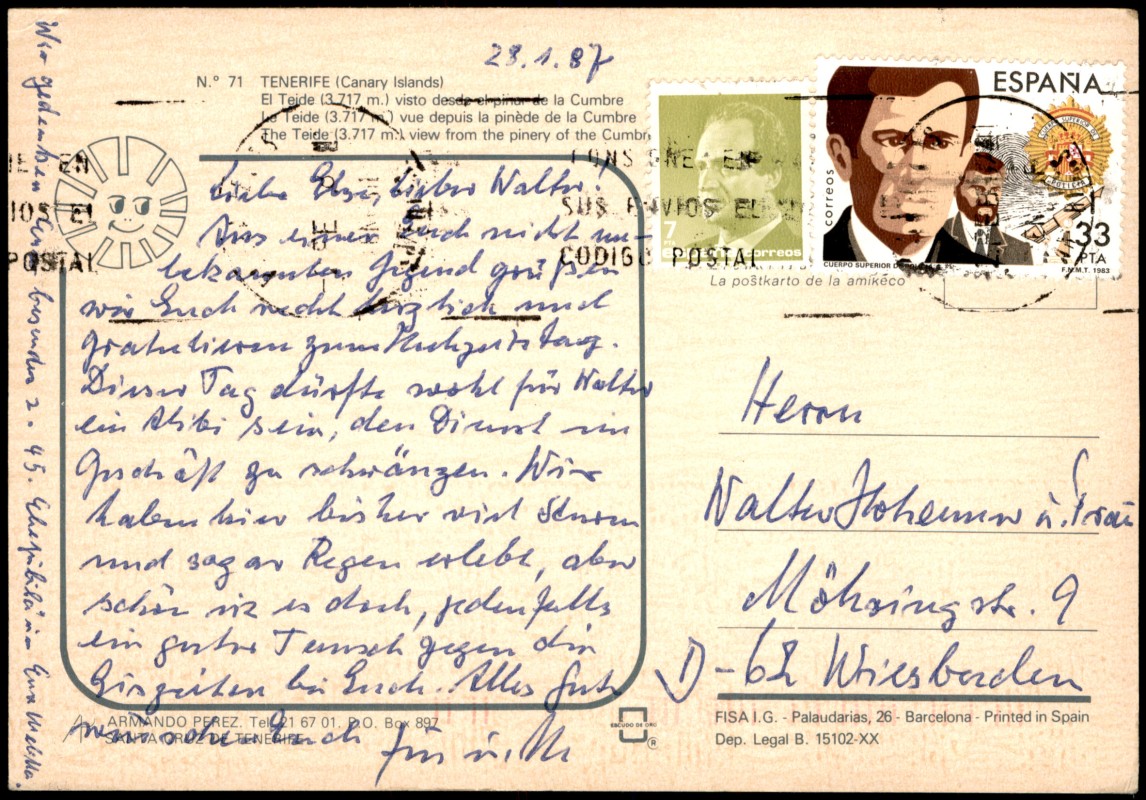 28.1.87
N.° 71 TENERIFE (Canary Islands)
El Teide (3.717 m.) visto desde el pinar de la Cumbre
Le Teide (3.717 m.) vue depuis la pinède de la Cumbre
The Teide (3.717 m.) view from the pinery of the Cumbre
ESPAÑA
correos
33
PTA
CUERPO SUPERIOR DE POLICIA
F.N.M.T. 1983
7
correos
CONSIGNE EN
SUS ENVIOS EL
CODIGO POSTAL
NE EN
IOS EL
POSTAL
La poŝtkarto de la amikeco
Liebe Else, lieber Walter!
Aus einer Euch nicht un-
bekannten Gegend grüßen
wir Euch recht herzlich und
gratulieren zum Hochzeitstag.
Dieser Tag dürfte wohl für Walter
ein Alibi sein, den Dienst im
Geschäft zu schwänzen. Wir
haben hier bisher viel Sturm
und sogar Regen erlebt, aber
schön ist es doch, jedenfalls
ein guter Tausch gegen die
Eiszeiten bei Euch. Alles Gute
wünschen Euch
Wir gedenken besonders 45. Ehejubiläum
Herrn
Walter u. Frau
Möhringstr. 9
D-62 Wiesbaden
ARMANDO PEREZ. Tel. 21 67 01. P.O. Box 897
SANTA CRUZ DE TENERIFE
ESCUDO DE ORO
®
FISA I.G. - Palaudarias, 26 - Barcelona - Printed in Spain
Dep. Legal B. 15102-XX